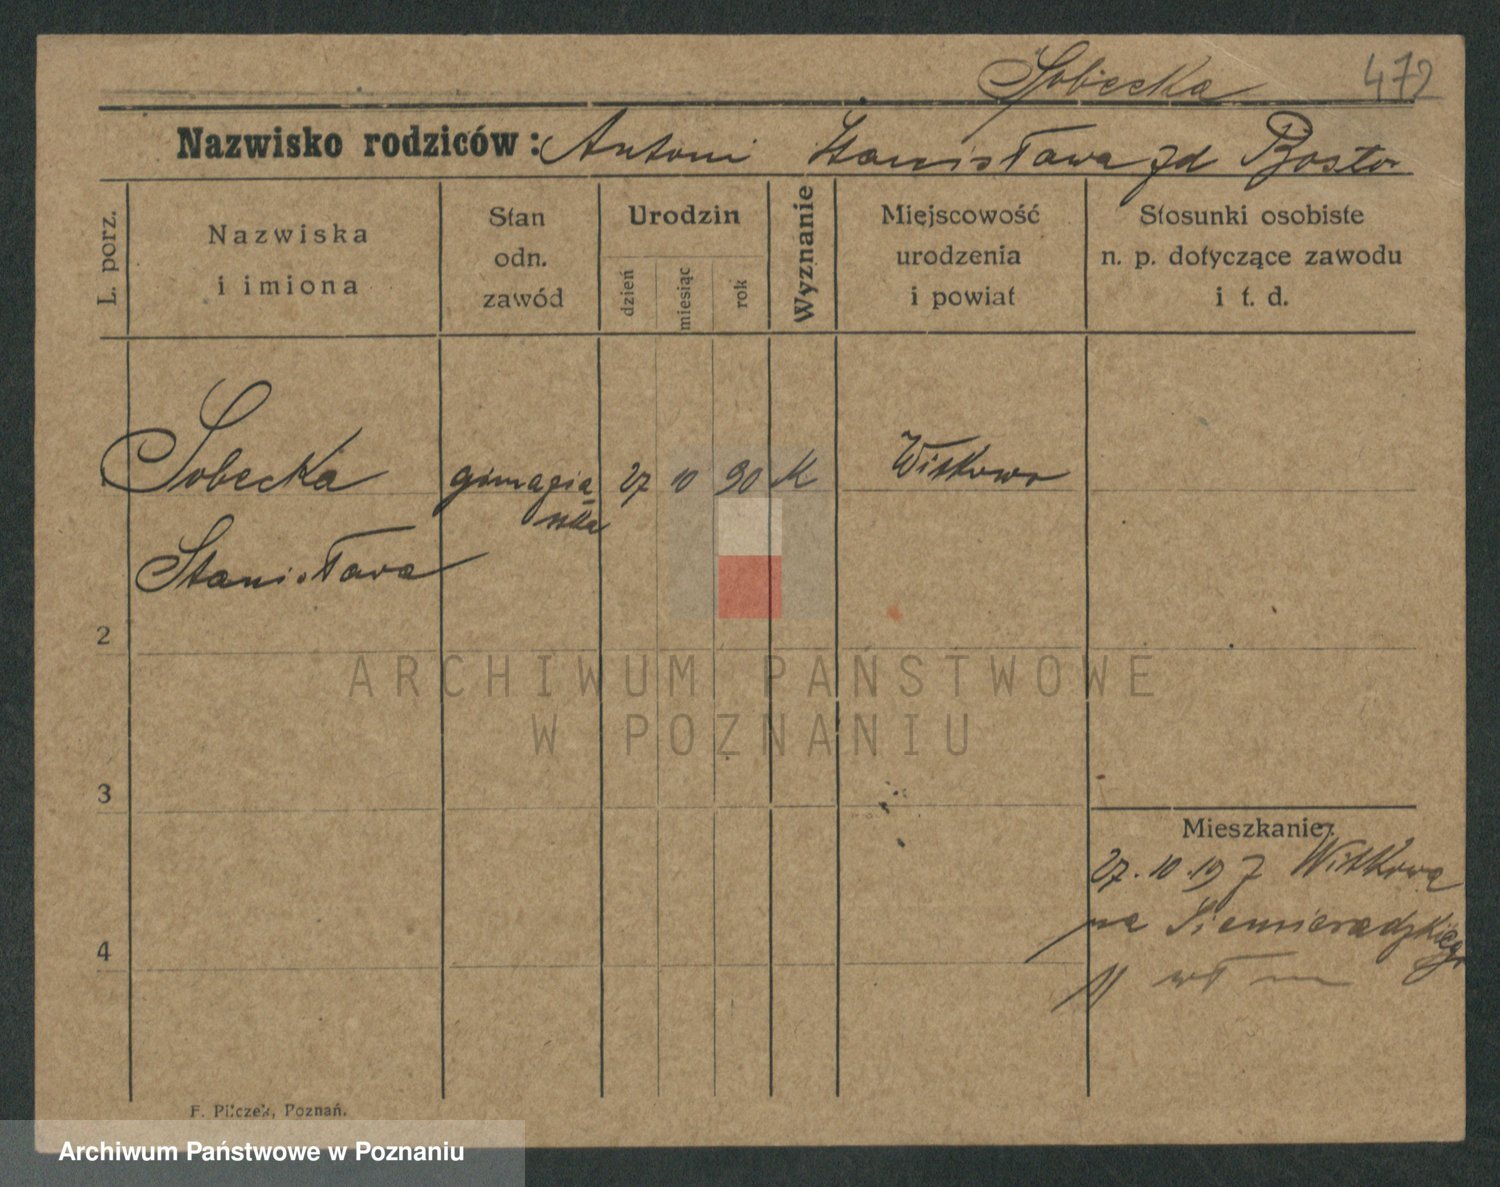 Sobecka 472
Nazwisko rodziców: Antoni Stanisława zd Bostor
L. porz.
Nazwiska
i imiona
Stan
odn.
zawód
Urodzin
dzień
miesiąc
rok
Wyznanie
Miejscowość
urodzenia
i powiat
Stosunki osobiste
n. p. dotyczące zawodu
i t. d.
Sobecka gimnazja- 27 10 90 K Witkowo
Stanisława
2
3
4
Mieszkanie:
27.10.19 z Witkowa
na Siemieradzkiego
11
F. Pilczek, Poznań.
ARCHIWUM PAŃSTWOWE
W POZNANIU
Archiwum Państwowe w Poznaniu